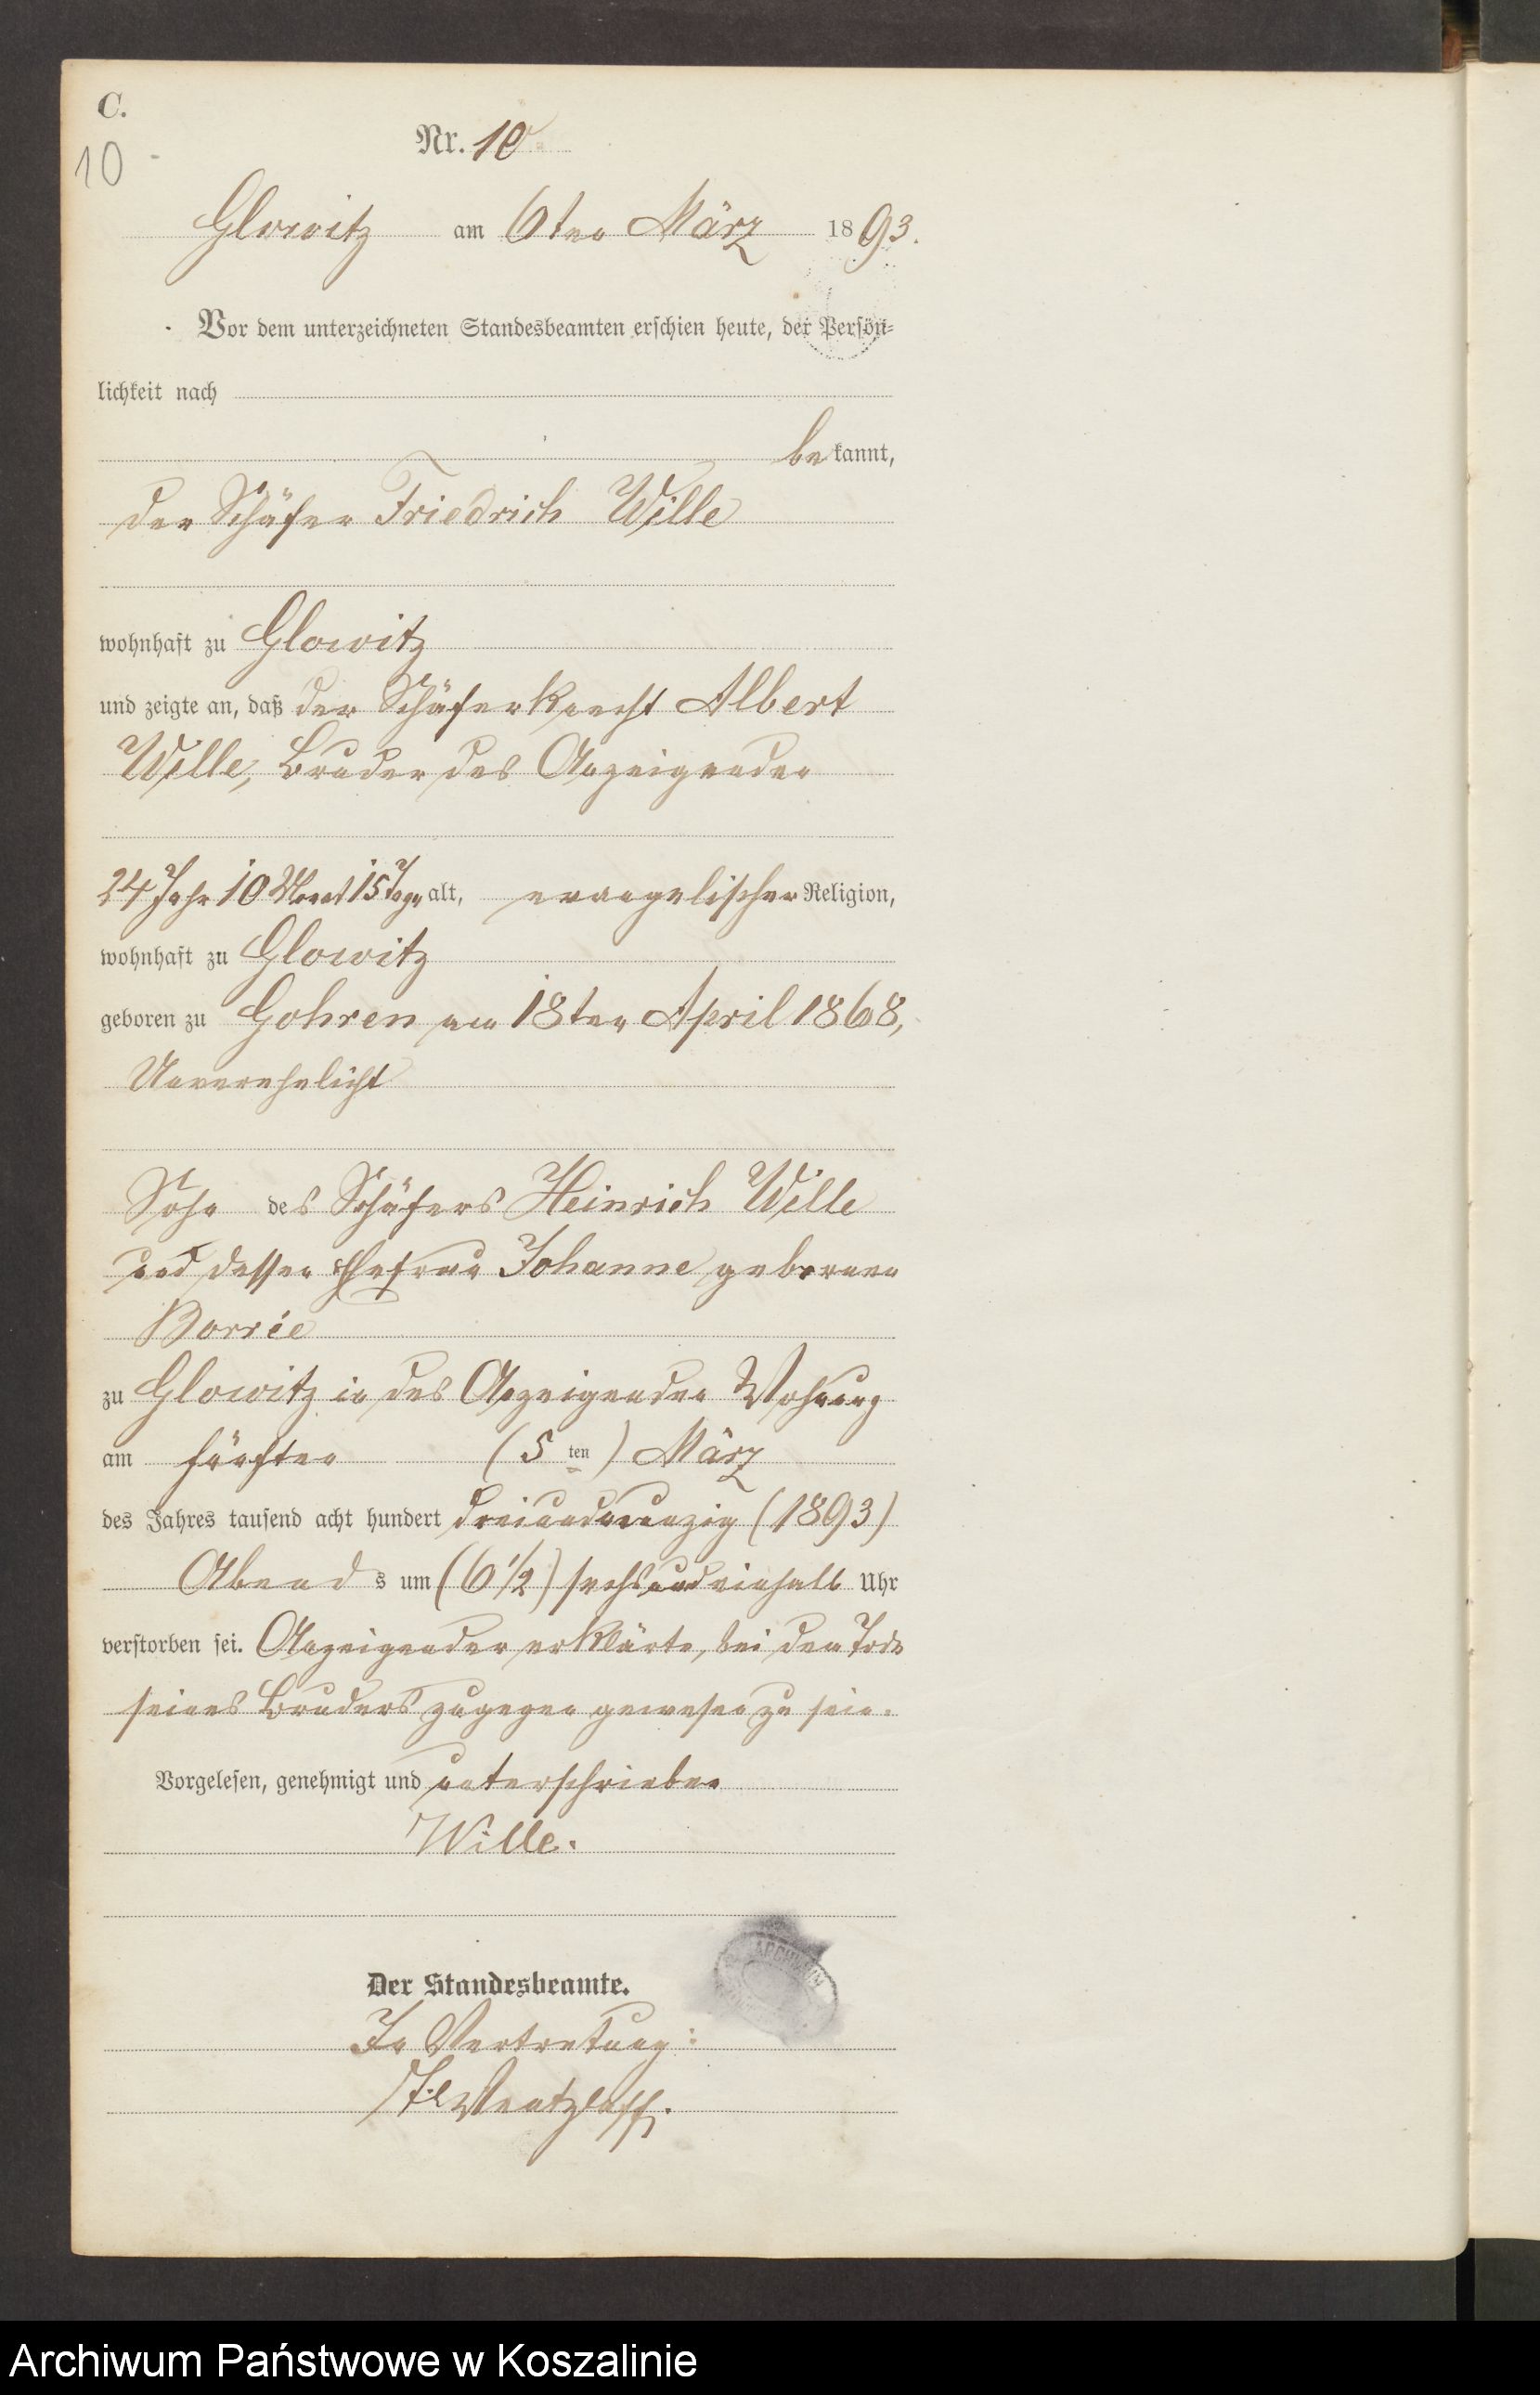 C.
10
Nr. 10
Glowitz am 6ten März 1893.
Vor dem unterzeichneten Standesbeamten erschien heute, der Persön-
lichkeit nach
bekannt,
der Schäfer Friedrich Wille
wohnhaft zu Glowitz
und zeigte an, daß der Schäferknecht Albert
Wille, Bruder des Anzeigenden
24 Jahr 10 Monat 15 Tage alt, evangelischer Religion,
wohnhaft zu Glowitz
geboren zu Gohren am 18ten April 1868,
Unverehelicht
Sohn des Schäfers Heinrich Wille
und dessen Ehefrau Johanne geborenen
Borrie
zu Glowitz in des Anzeigenden Wohnung
am fünften (5 ten) März
des Jahres tausend acht hundert dreiundneunzig (1893)
Abends um (6 1/2) sechsundeinhalb Uhr
verstorben sei. Anzeigender erklärte, bei dem Tode
seines Bruders zugegen gewesen zu sein.
Vorgelesen, genehmigt und unterschrieben
Wille.
Der Standesbeamte.
In Vertretung:
Wentzlaff.
Archiwum Państwowe w Koszalinie